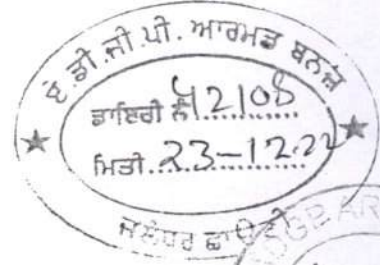 ਏ.ਡੀ.ਜੀ.ਪੀ. ਆਰਮਡ ਬਨਜ਼
ਡਾਇਰੀ ਨੰ 42108
ਮਿਤੀ 23-12-22
ਜਲੰਧਰ ਛਾਉਣੀ